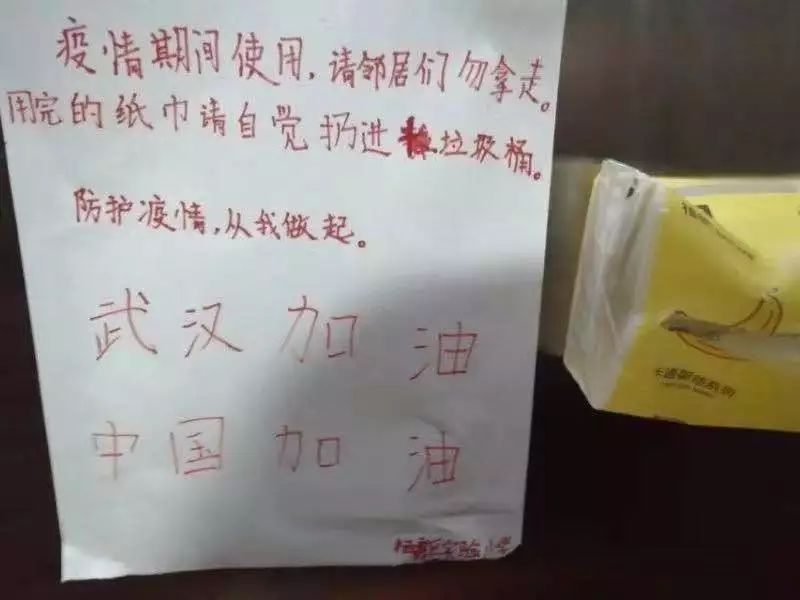 疫情期间使用,请邻居们勿拿走。
用完的纸巾请自觉扔进垃圾桶。
防护疫情,从我做起。
武汉加油
中国加油
实验小学